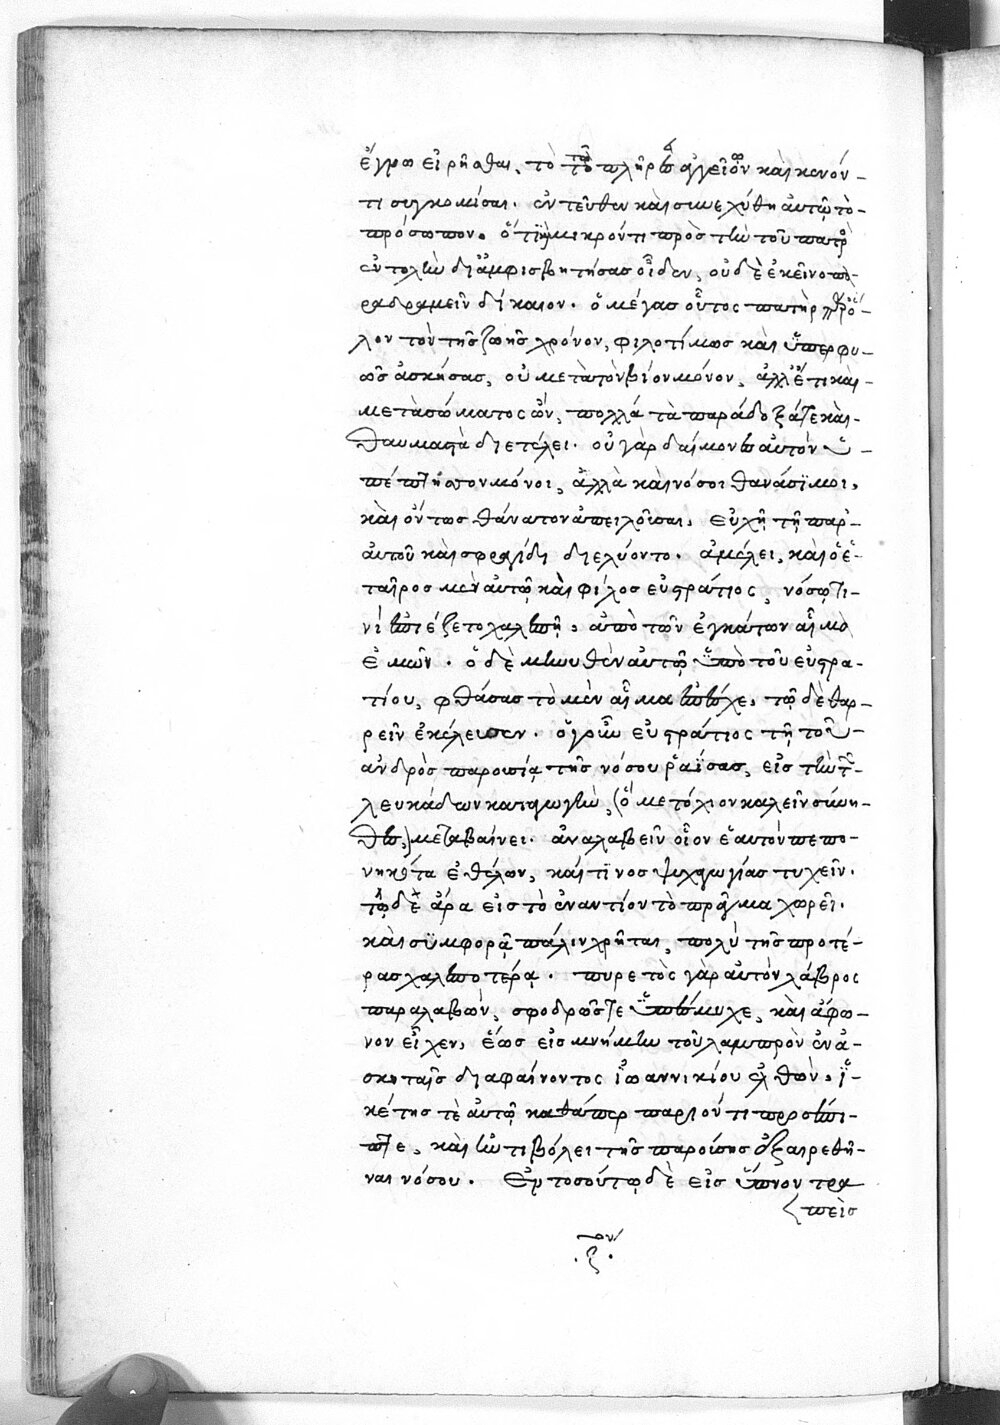 ἔγνω εἰρῆσθαι, τὸ τοῦ πλήρους ἀγγεῖον καὶ κενόν-
τι συγκομίσαι. ἐντεῦθεν καὶ συνεχύθη αὐτῷ τὸ-
πρόσωπον. ὅτι μὴ μικρόν τι πρὸς τὴν τοῦ πατρὸς
ἐντολὴν διαμφισβητήσας οἶδεν, οὐδὲ ἐκεῖνο πα-
ραδραμεῖν δίκαιον. ὁ μέγας οὗτος πατὴρ παρ' ὅ-
λον τὸν τῆς ζωῆς χρόνον, φιλοτίμως καὶ ὑπερφυ-
ῶς ἀσκήσας, οὐ μετὰ τὸν βίον μόνον, ἀλλ' ἔτι καὶ-
μετὰ σώματος ὢν, πολλά τὰ παράδοξά τε καὶ-
θαυμαστὰ διετέλει. οὐ γὰρ δαίμονες αὐτὸν ὑ-
πέπτησσον μόνοι, ἀλλὰ καὶ νόσοι θανάσιμοι,
καὶ ὄντως θάνατον ἀπειλοῦσαι, εὐχῇ τῇ παρ'-
αὐτοῦ καὶ σφραγίδι διελύοντο. ἀμέλει, καὶ ὁ ἑ-
ταῖρος μὲν αὐτῷ καὶ φίλος εὐστράτιος, νόσῳ τι-
νί ἐπιέζετο χαλεπῇ, ἀπὸ τῶν ἐγκάτων αἷμα
ἐμῶν. ὁ δὲ μηνυθὲν αὐτῷ ὑπὸ τοῦ εὐστρα-
τίου, φθάσας τὸ μὲν αἷμα ἐπέχε, τῷ δὲ θαρ-
ρεῖν ἐκέλευσεν. ὁ γοῦν εὐστράτιος τῇ τοῦ-
ἀνδρὸς παρουσίᾳ τῆς νόσου ῥαΐσας, εἰς τὴν τ-
λευκάδων καταγωγὴν, (ὃ μετόχιον καλεῖν σύνη-
θες,) μεταβαίνει. ἀναλαβεῖν οἷον ἑαυτὸν πεπο-
νηκότα ἐθέλων, καί τινος ψυχαγωγίας τυχεῖν.
τῷ δὲ ἄρα εἰς τὸ ἐναντίον τὸ πρᾶγμα χωρεῖ.
καὶ συμφορᾷ πάλιν χρῆται, πολὺ τῆς προτέ-
ρας χαλεπωτέρᾳ. πυρετὸς γὰρ αὐτὸν λάβρος
παραλαβὼν, σφοδρῶς τε ὑπέσμυχε, καὶ ἄφω-
νον εἶχεν, ἕως εἰς μνήμην τοῦ λαμπρὸν ἐν ἀ-
σκηταῖς διαφαίνοντος ἰωαννικίου ἐλθὼν, ἱ-
κέτης τὲ αὐτῷ καθάπερ παριόντι προσπί-
πτε, καὶ ἠντιβόλει τῆς παρούσης ἐξαιρεθῆ-
ναι νόσου. Ἐν τοσούτῳ δὲ εἰς ὕπνον τρα
πεὶς
.ζ.ον